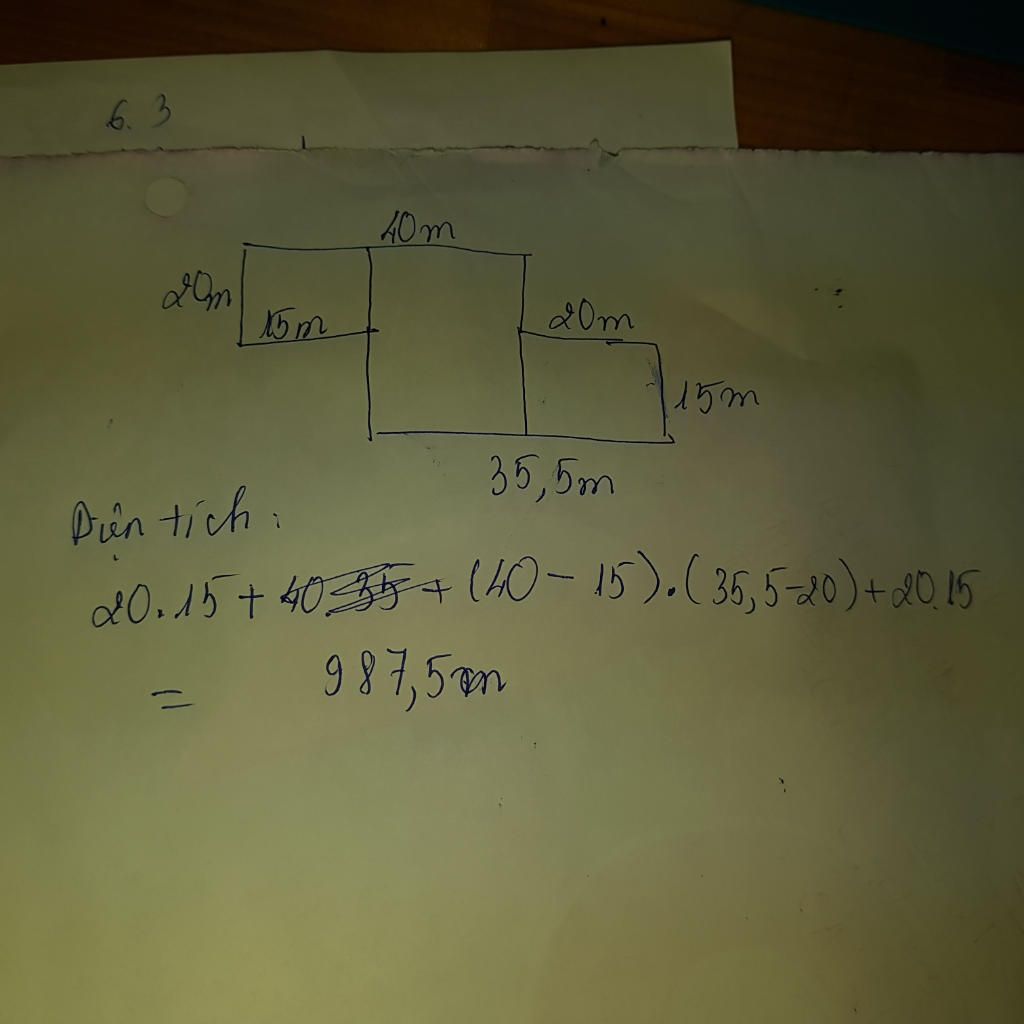 6. 3
40m
20m
15m
20m
15m
35,5m
Diện tích:
20.15 + (40 - 15).(35,5-20)+20.15
= 987,5m